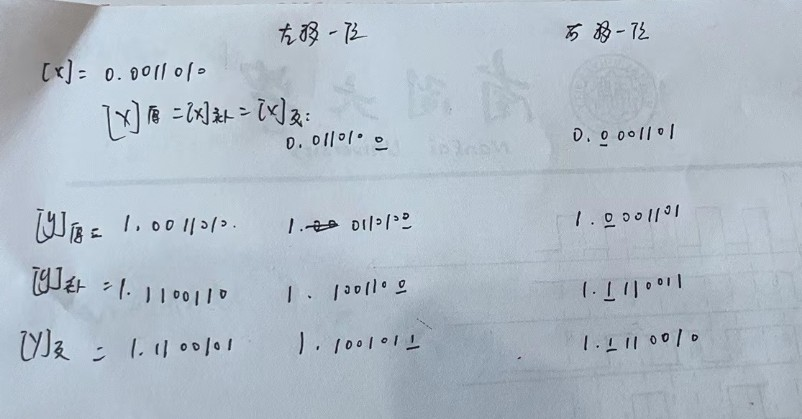 左移一位 右移一位
[x]= 0.0011010
[x]原=[x]补=[x]反:
0.0110100 0.0001101
[y]原= 1.0011010. 1. 0110100 1.0001101
[y]补 =1.1100110 1.1001100 1.1110011
[y]反 = 1.1100101 1.1001011 1.1110010
南开大学
Nankai University